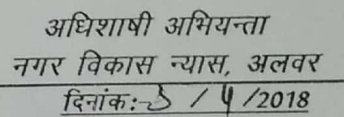 अधिशाषी अभियन्ता
नगर विकास न्यास, अलवर
दिनांक:- / 4 /2018